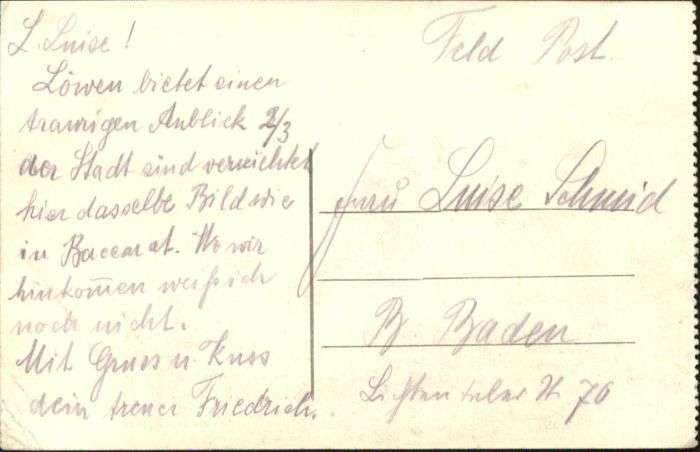 L. Luise!
Löwen bietet einen
traurigen Anblick 2/3
der Stadt sind vernichtet
hier dasselbe Bild wie
in Baccarat. Wo wir
hinkom̄en weiß ich
noch nicht.
Mit Gruss u. Kuss
dein treuer Friedrich.
Feld Post.
Frau Luise Schmid
B. Baden
Lichtentaler St 70